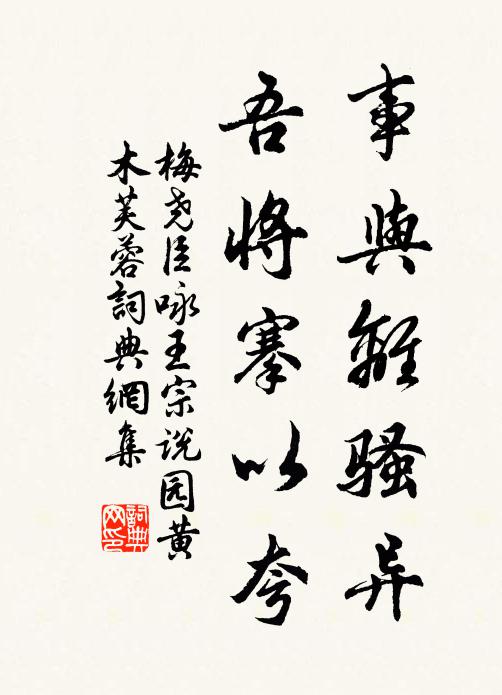 事與離騷异
吾將搴以夸
梅尧臣咏王宗说园黄
木芙蓉詞典網集
詞典
网印